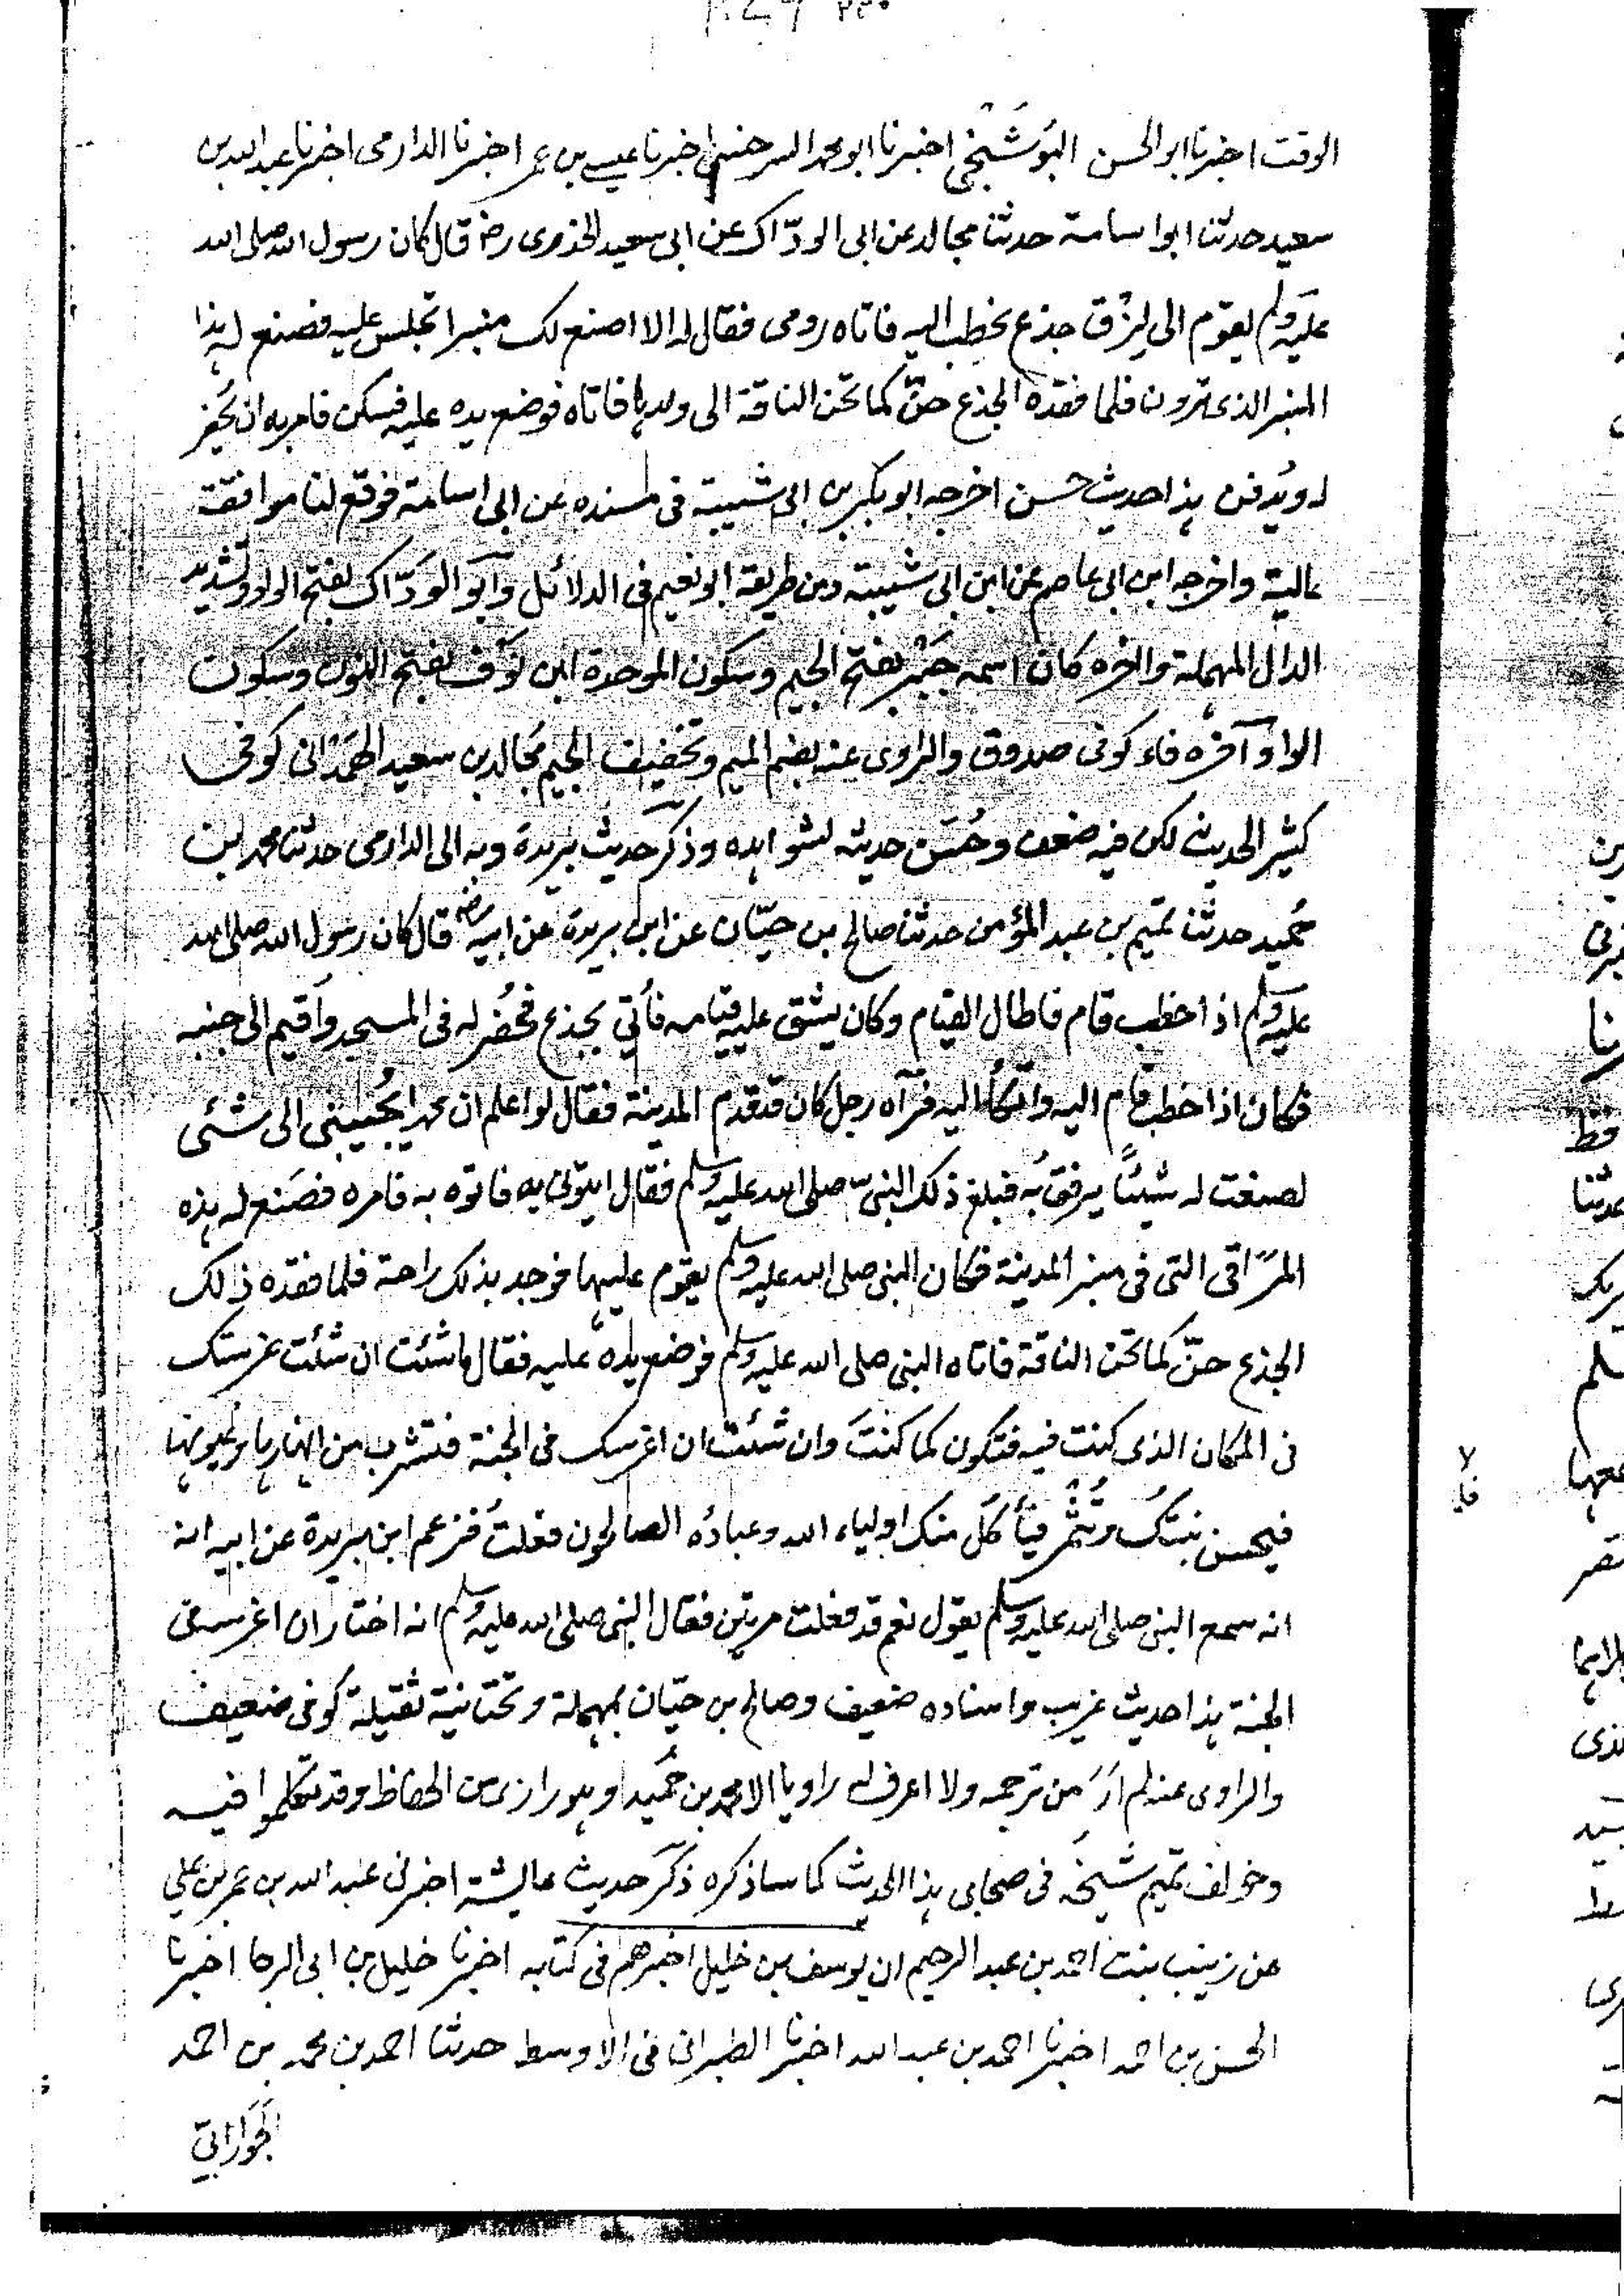 الوقت اخبرنا ابو الحسن البُوشَنْجى اخبرنا ابو محمد السرخسى اخبرنا عيسى بن عمر اخبرنا الدارمى اخبرنا عبد الله بن
سعيد حدثنا ابو اسامة حدثنا مجالد عن ابى الودّاك عن ابى سعيد الخدرى رضـ قال كان رسول الله صلى الله
عليه وسلم يقوم الى لِزْق جذع يخطب اليه فاتاه رومى فقال له الا اصنع لك منبرا تجلس عليه فصنع له هذا
المنبر الذى ترون فلما فقده الجذع حنّ كما تحن الناقة الى ولدها فاتاه فوضع يده عليه فسكن فامر به ان يُحفر
له ويُدفن هذا حديث حسن اخرجه ابو بكر بن ابى شيبة فى مسنده عن ابى اسامة فوقع لنا موافقة
عالية واخرجه ابن ابى عاصم عن ابن ابى شيبة ومن طريقه ابو نعيم فى الدلائل وابو الوَدّاك بفتح الواو وتشديد
الدال المهملة واخره كاف اسمه جَبْر بفتح الجيم وسكون الموحدة ابن نَوْف بفتح النون وسكون
الواو آخره فاء كوفى صدوق والراوى عنه بضم الميم وتخفيف الجيم مُجالد بن سعيد الهَمْدَانى كوفى
كثير الحديث لكن فيه ضعف وحُسّن حديثه لشواهده وذكر حديث بريدة وبه الى الدارمى حدثنا محمد بن
حُميد حدثنا تميم بن عبد المؤمن حدثنا صالح بن حيّان عن ابن بريدة عن ابيه رضـ قال كان رسول الله صلى الله
عليه وسلم اذا خطب قام فاطال القيام وكان يشق عليه قيامه فأتي بجذع فحُفر له فى المسجد واقيم الى جنبه
فكان اذا خطب قام اليه واتكأ اليه فرآه رجل كان قد قدم المدينة فقال لو اعلم ان محمدا يُجيبنى الى شئى
لصنعت له شيئًا يرفق به فبلغ ذلك النبى صلى الله عليه وسلم فقال ايتونى به فاتوه به فامره فصَنع له هذه
المَرَاقى التى فى منبر المدينة فكان النبى صلى الله عليه وسلم يقوم عليها فوجد بذلك راحة فلما فقده ذلك
الجذع حنّ كما تحن الناقة فاتاه النبى صلى الله عليه وسلم فوضع يده عليه فقال ما شئت ان شئت غرستك
فى المكان الذى كنت فيه فتكون كما كنتَ وان شئت ان اغرسك فى الجنة فتشرب من انهارها وعيونها
فيحسن نبتك وتُثمر فيأكل منك اولياء الله وعباده الصالحون فعلتُ فزعم ابن بريدة عن ابيه انه
انه سمع النبى صلى الله عليه وسلم يقول نعم قد فعلت مرتين فقال النبى صلى الله عليه وسلم انه اختار ان اغرسه فى
الجنة هذا حديث غريب واسناده ضعيف وصالح بن حيّان بمهملة وتحتانية ثقيلة كوفى ضعيف
والراوى عنه لم ارَ من ترجمه ولا اعرف له راويا الا محمد بن حُمَيد وهو رازى من الحفاظ وقد تكلموا فيه
وخولف تميم شيخَه فى صحابى هذا الحديث كما ساذكره ذكر حديث عايشة اخبرنى عبد الله بن عمر بن على
عن زينب بنت احمد بن عبد الرحيم ان يوسف بن خليل اخبرهم فى كتابه اخبرنا خليل بن ابى الرجا اخبرنا
الحسن بن احمد اخبرنا احمد بن عبد الله اخبرنا الطبرانى فى الاوسط حدثنا احمد بن محمد بن احمد
الجَوَاربى